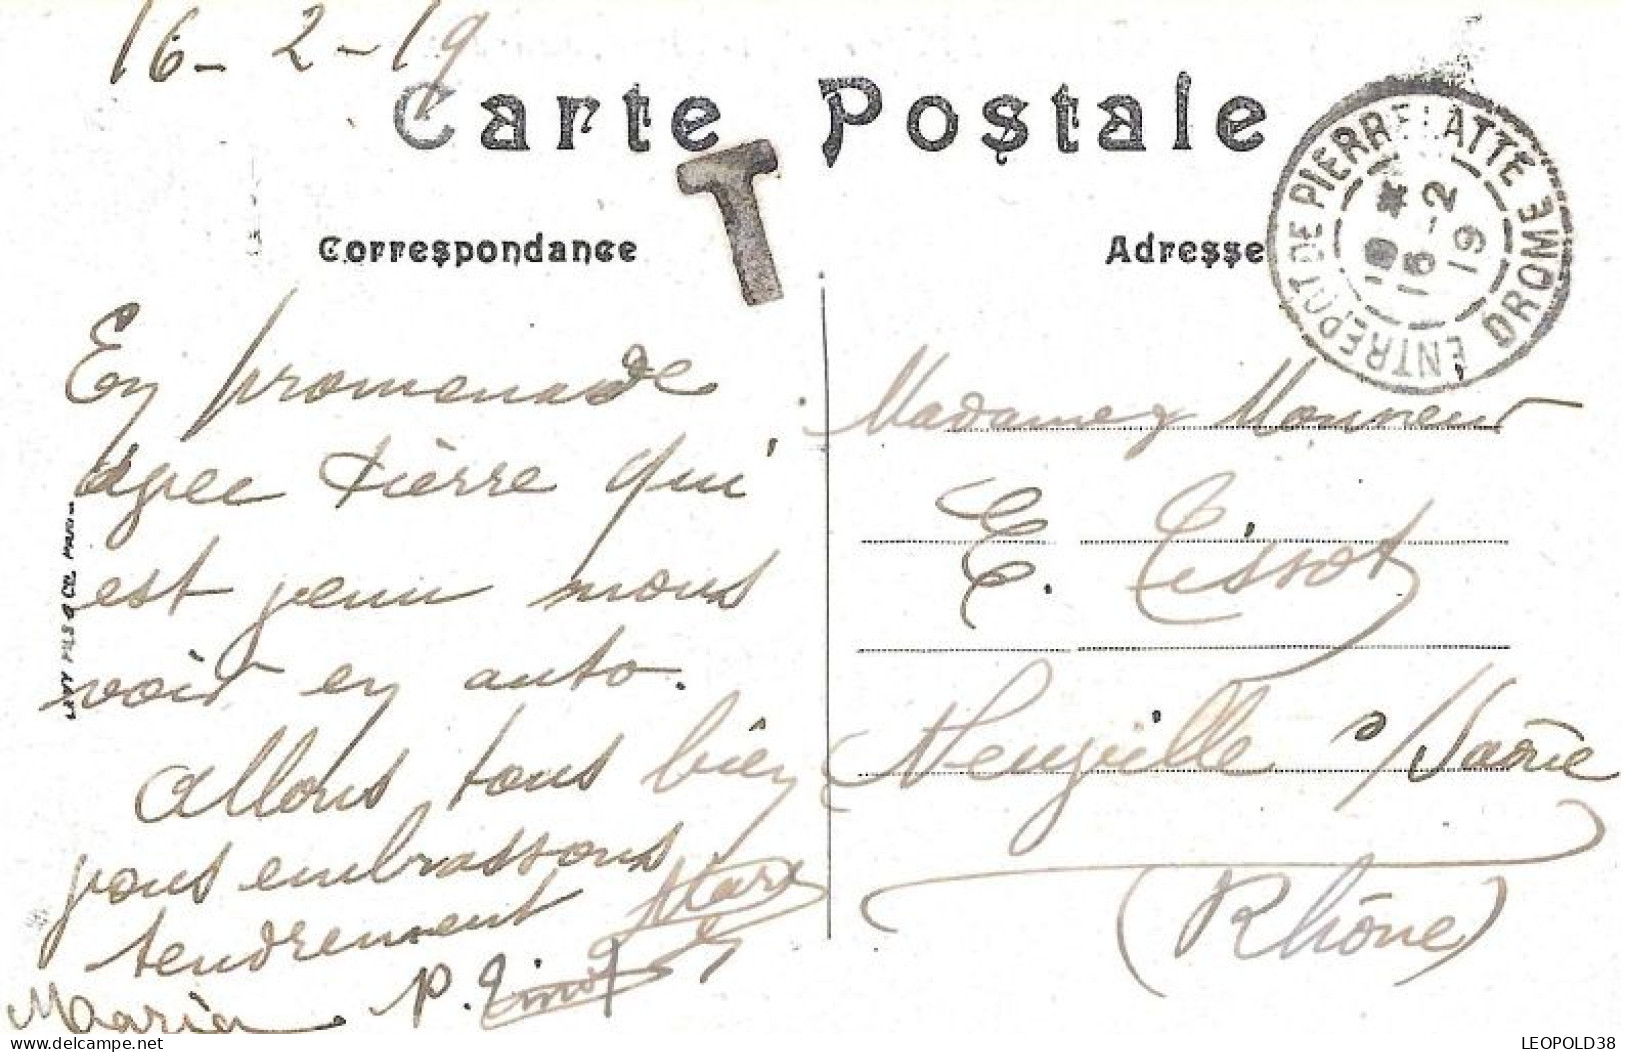 16-2-19
Carte Postale
T
ENTREPOT DE PIERRELATTE DROME
19 *
16-2
19
Correspondance
Adresse
En promenade
avec Pierre qui
est venu nous
voir en auto.
Allons tous bien
vous embrassons
tendrement
Maria P.
Madame Monneur
E. Tissot
Neuville s/Saône
(Rhône)
LEVY FILS & CIE PARIS
delcampe.net
LEOPOLD38